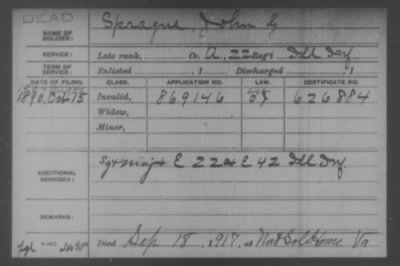 DEAD
NAME OF SOLDIER: Sprague, John G
SERVICE: Late rank, Co. A, 22 Reg't Ill Inf.
TERM OF SERVICE: Enlisted , 1 Discharged , 1
DATE OF FILING. CLASS. APPLICATION NO. LAW. CERTIFICATE NO.
1890, Oct 15 Invalid, 869146 626884
Widow,
Minor,
ADDITIONAL SERVICES: E 22 & E 42 Ill Inf.
REMARKS:
Died Sep 18, 1917, at Nat Sol Home Va